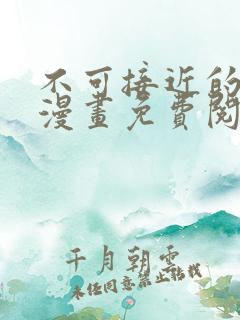 不可接近的
漫畫免費閱
千月朝雲
未经同意禁止转载